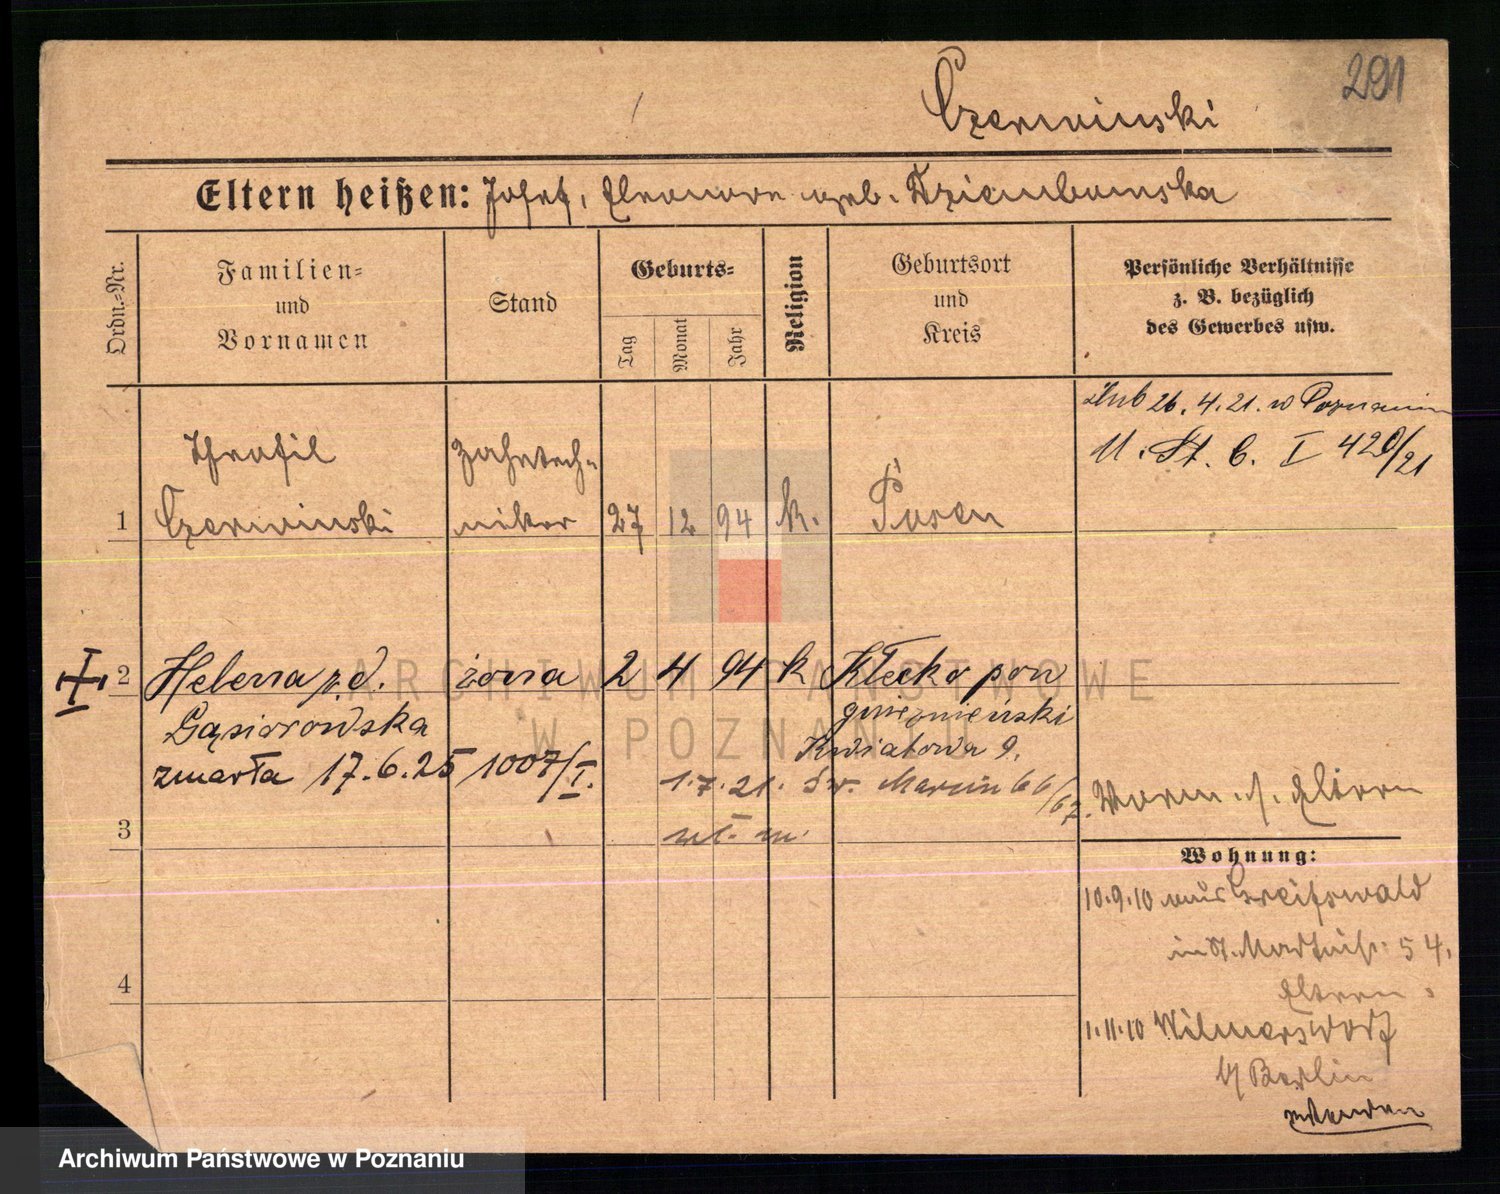 291
Czerwinski
Eltern heißen: Josef, Eleonore geb. Dziembowska
Ordn.-Nr.
Familien-
und
Vornamen
Stand
Geburts-
Tag
Monat
Jahr
Religion
Geburtsort
und
Kreis
Persönliche Verhältnisse
z. B. bezüglich
des Gewerbes usw.
ślub 26. 4. 21. w Poznaniu
U. St. C. I 420/21
1
Theofil
Czerwinski
Zahntech-
niker
27 12 94 k.
Posen
2
Helena p. d.
Gąsiorowska
zmarła 17.6.25 1007/I.
żona
2 4 94 k
Kłecko pow
gnieźnieński
Kwiatowa 9.
1.7.21. Św. Marcin 66/67.
3
4
Vorm. s. Eltern
Wohnung:
10.9.10 aus Greifswald
in St. Martinstr. 54.
Eltern
1.11.10 Wilmersdorf
b/ Berlin
ARCHIWUM PAŃSTWOWE
W POZNANIU
Archiwum Państwowe w Poznaniu